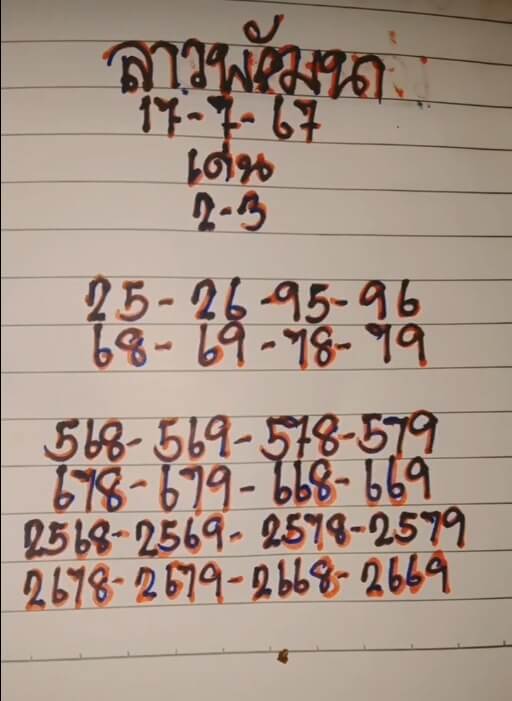 ลาวพัฒนา
17-7-67
เด่น
2-3
25-26-95-96
68-69-78-79
568-569-578-579
678-679-668-669
2568-2569-2578-2579
2678-2679-2668-2669